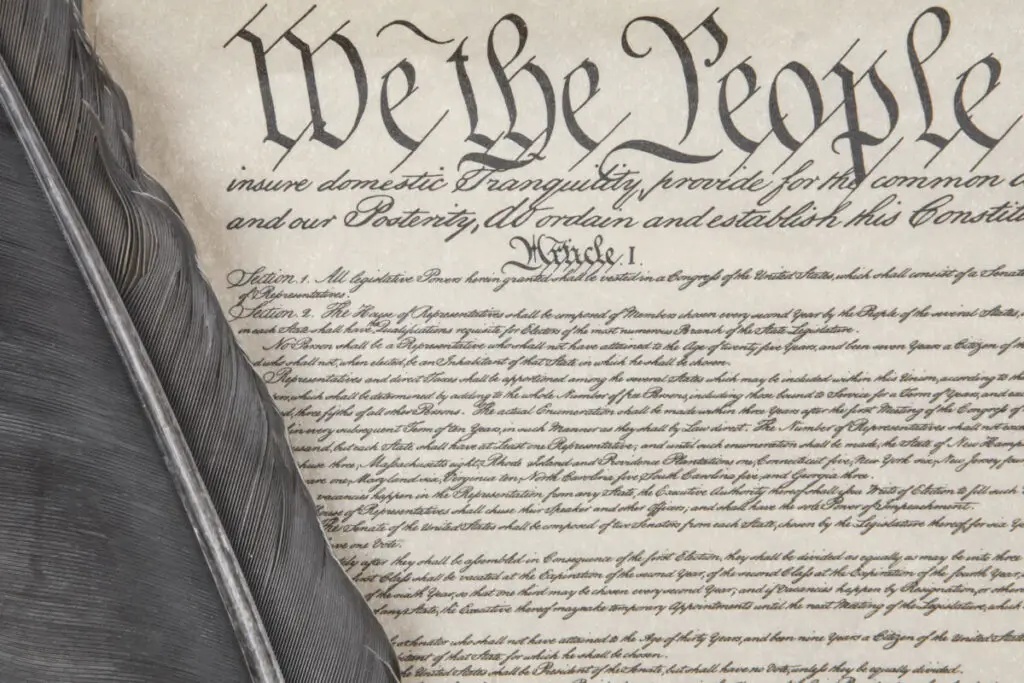 We the People
insure domestic Tranquility, provide for the common
and our Posterity, do ordain and establish this Constit
Article. I.
Section. 1. All legislative Powers herein granted shall be vested in a Congress of the United States, which shall consist of a Senat
of Representatives.
Section. 2. The House of Representatives shall be composed of Members chosen every second Year by the People of the several States,
in each State shall have the Qualifications requisite for Electors of the most numerous Branch of the State Legislature.
No Person shall be a Representative who shall not have attained to the Age of twenty five Years, and been seven Years a Citizen of th
who shall not, when elected, be an Inhabitant of that State in which he shall be chosen.
Representatives and direct Taxes shall be apportioned among the several States which may be included within this Union, according to
which shall be determined by adding to the whole Number of free Persons, including those bound to Service for a Term of Years, and
three fifths of all other Persons. The actual Enumeration shall be made within three Years after the first Meeting of the Congress of
in every subsequent Term of ten Years, in such Manner as they shall by Law direct. The Number of Representatives shall not
but each State shall have at Least one Representative; and until such enumeration shall be made, the State of New Hamp
chuse three, Massachusetts eight, Rhode Island and Providence Plantations one, Connecticut five, New York six, New Jersey
one, Maryland six, Virginia ten, North Carolina five, South Carolina five, and Georgia three.
vacancies happen in the Representation from any State, the Executive Authority thereof shall issue Writs of Election to fill such
House of Representatives shall chuse their Speaker and other Officers; and shall have the sole Power of Impeachment.
The Senate of the United States shall be composed of two Senators from each State, chosen by the Legislature thereof, for six
one Vote.
after they shall be assembled in Consequence of the first Election, they shall be divided as equally as may be into three
first Class shall be vacated at the Expiration of the second Year, of the second Class at the Expiration of the fourth Year,
of the sixth Year, so that one third may be chosen every second Year; and if Vacancies happen by Resignation, or other
any State, the Executive thereof may make temporary Appointments until the next Meeting of the Legislature, which
who shall not have attained to the Age of thirty Years, and been nine Years a Citizen of the United States
of that State for which he shall be chosen.
United States shall be President of the Senate, but shall have no Vote, unless they be equally divided.